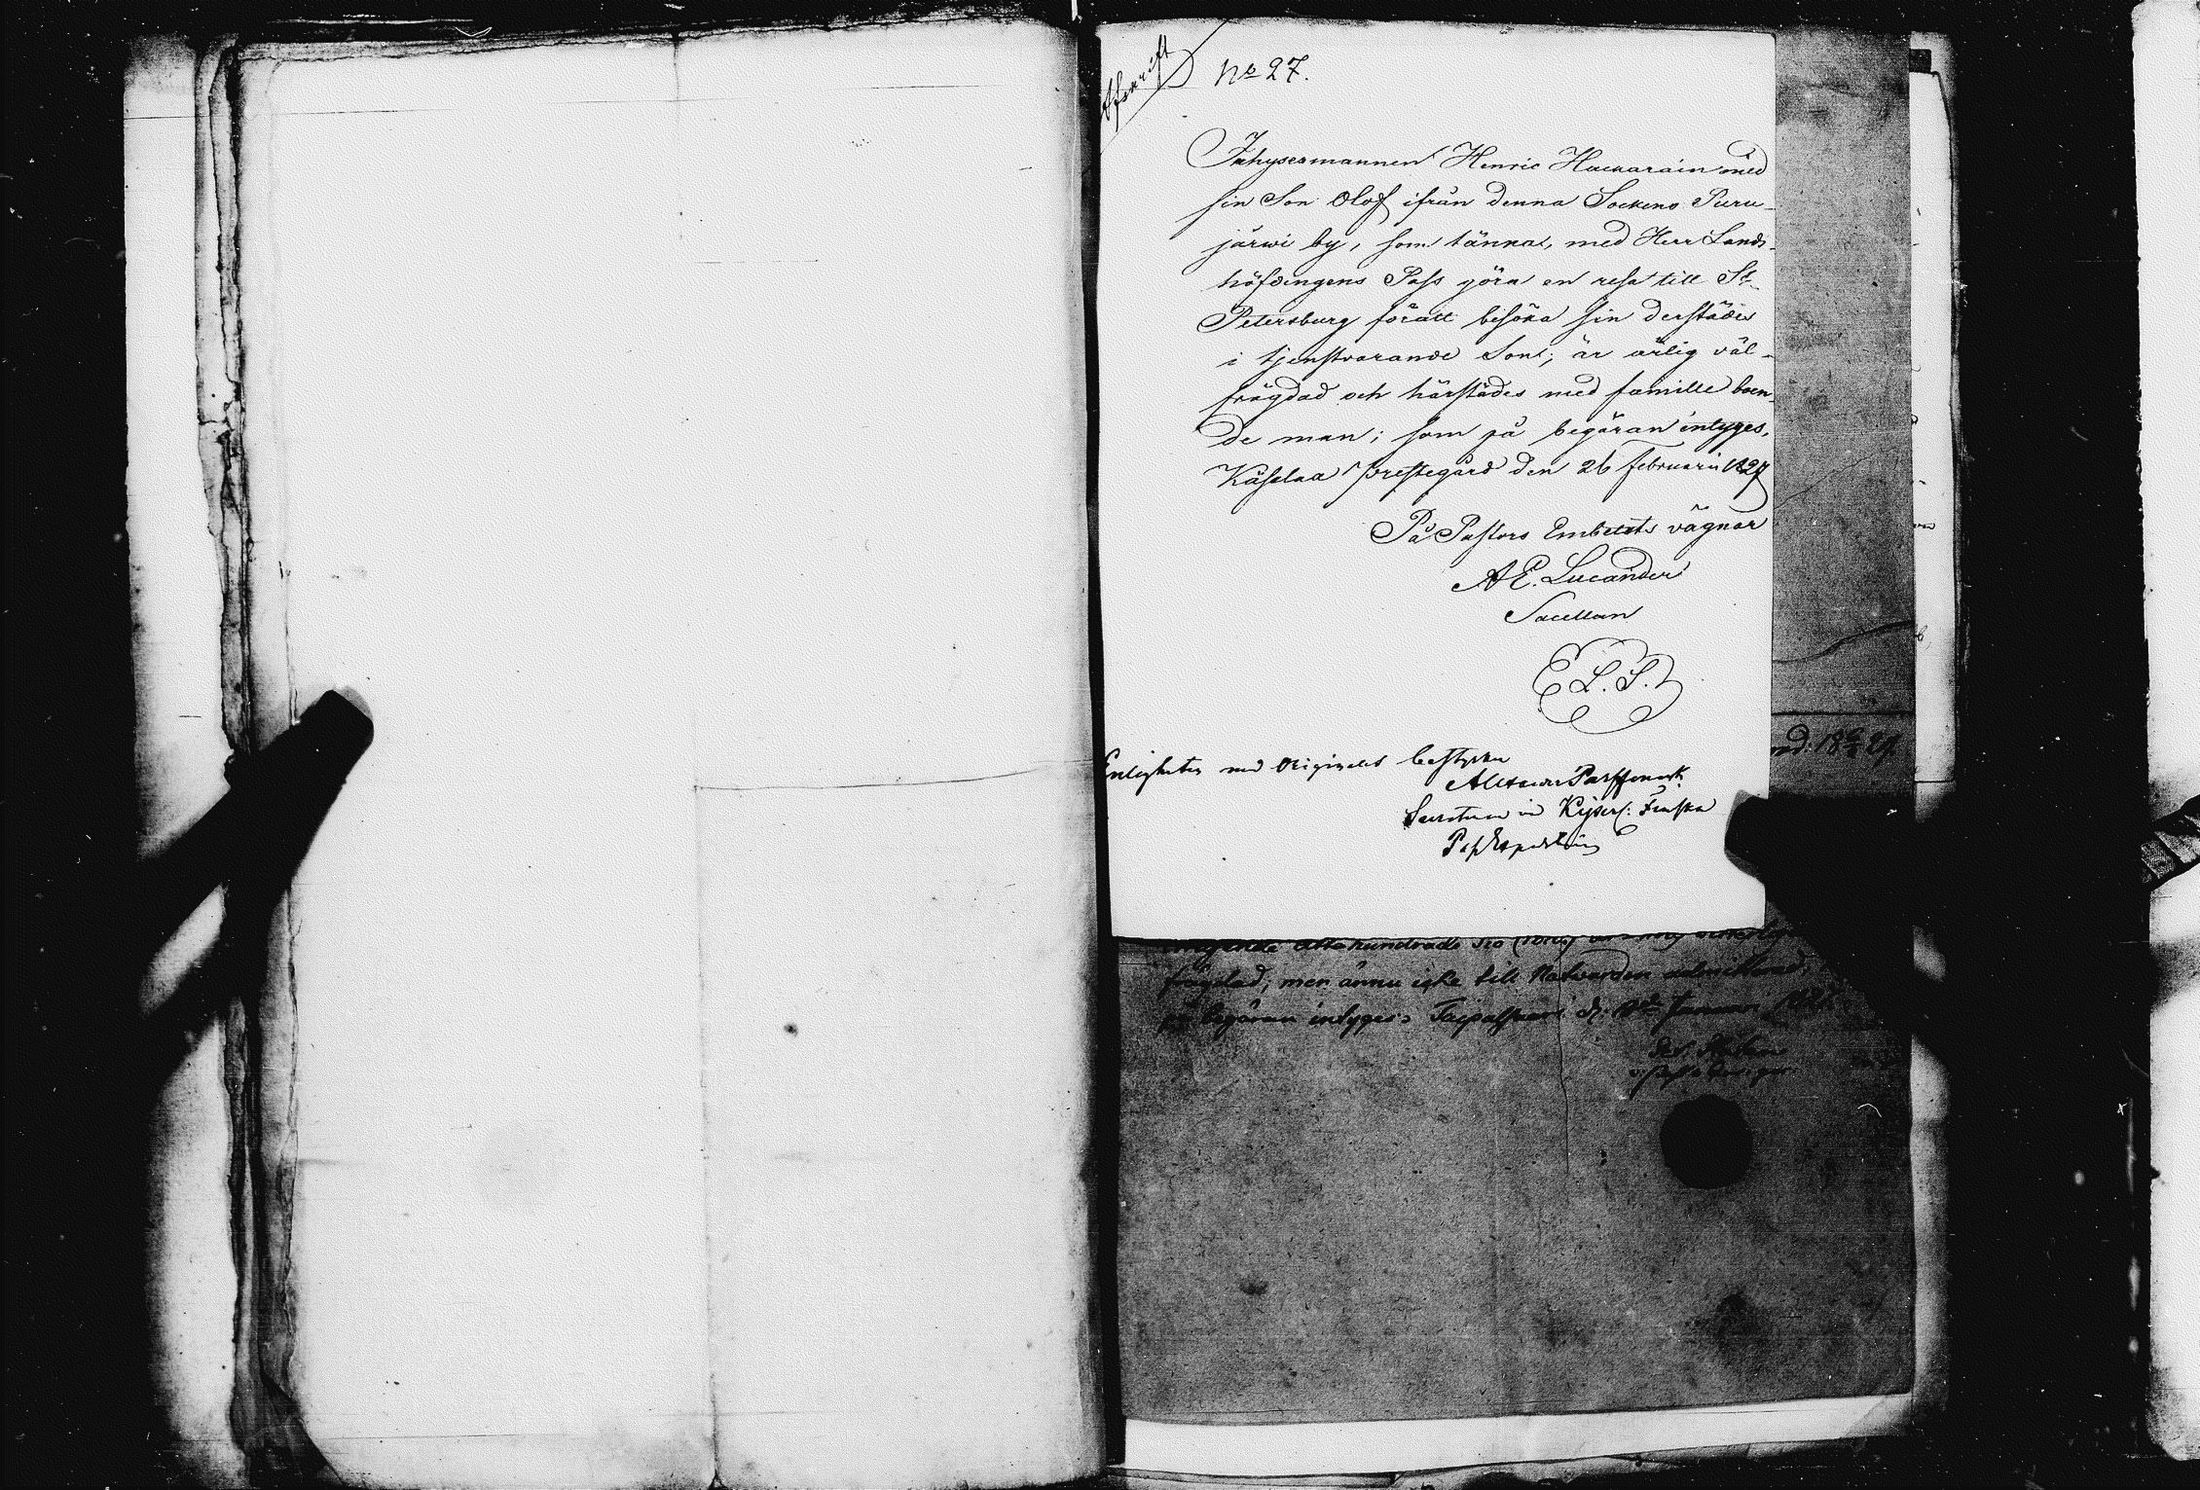 Afskrift
No 27.
Inhysesmannen Henric Huckarain med
sin Son Olof ifrån denna Sockens Puru-
järwi by, som tännas, med Herr Lands-
höfdingens Pass göra en resa till St
Petersburg föratt besöka sin derstädes
i tjenstvarande Son; är ärlig väl-
frägdad och härstädes med famille boen-
de man; som på begäran intyges,
Käfalaa Prestegård den 26 februarii 1827
På Pastors Embetets vägnar
A E. Lucander
Sacellan
L. S.
Enligheten med Originalet bestyrker
Alexander
Kejserl: Finska
Pass Expedition
åttahundrade
frägdad; men ännu icke till Nattvarden admitterad,
på begäran intyges. Taipalsaari d. Januari